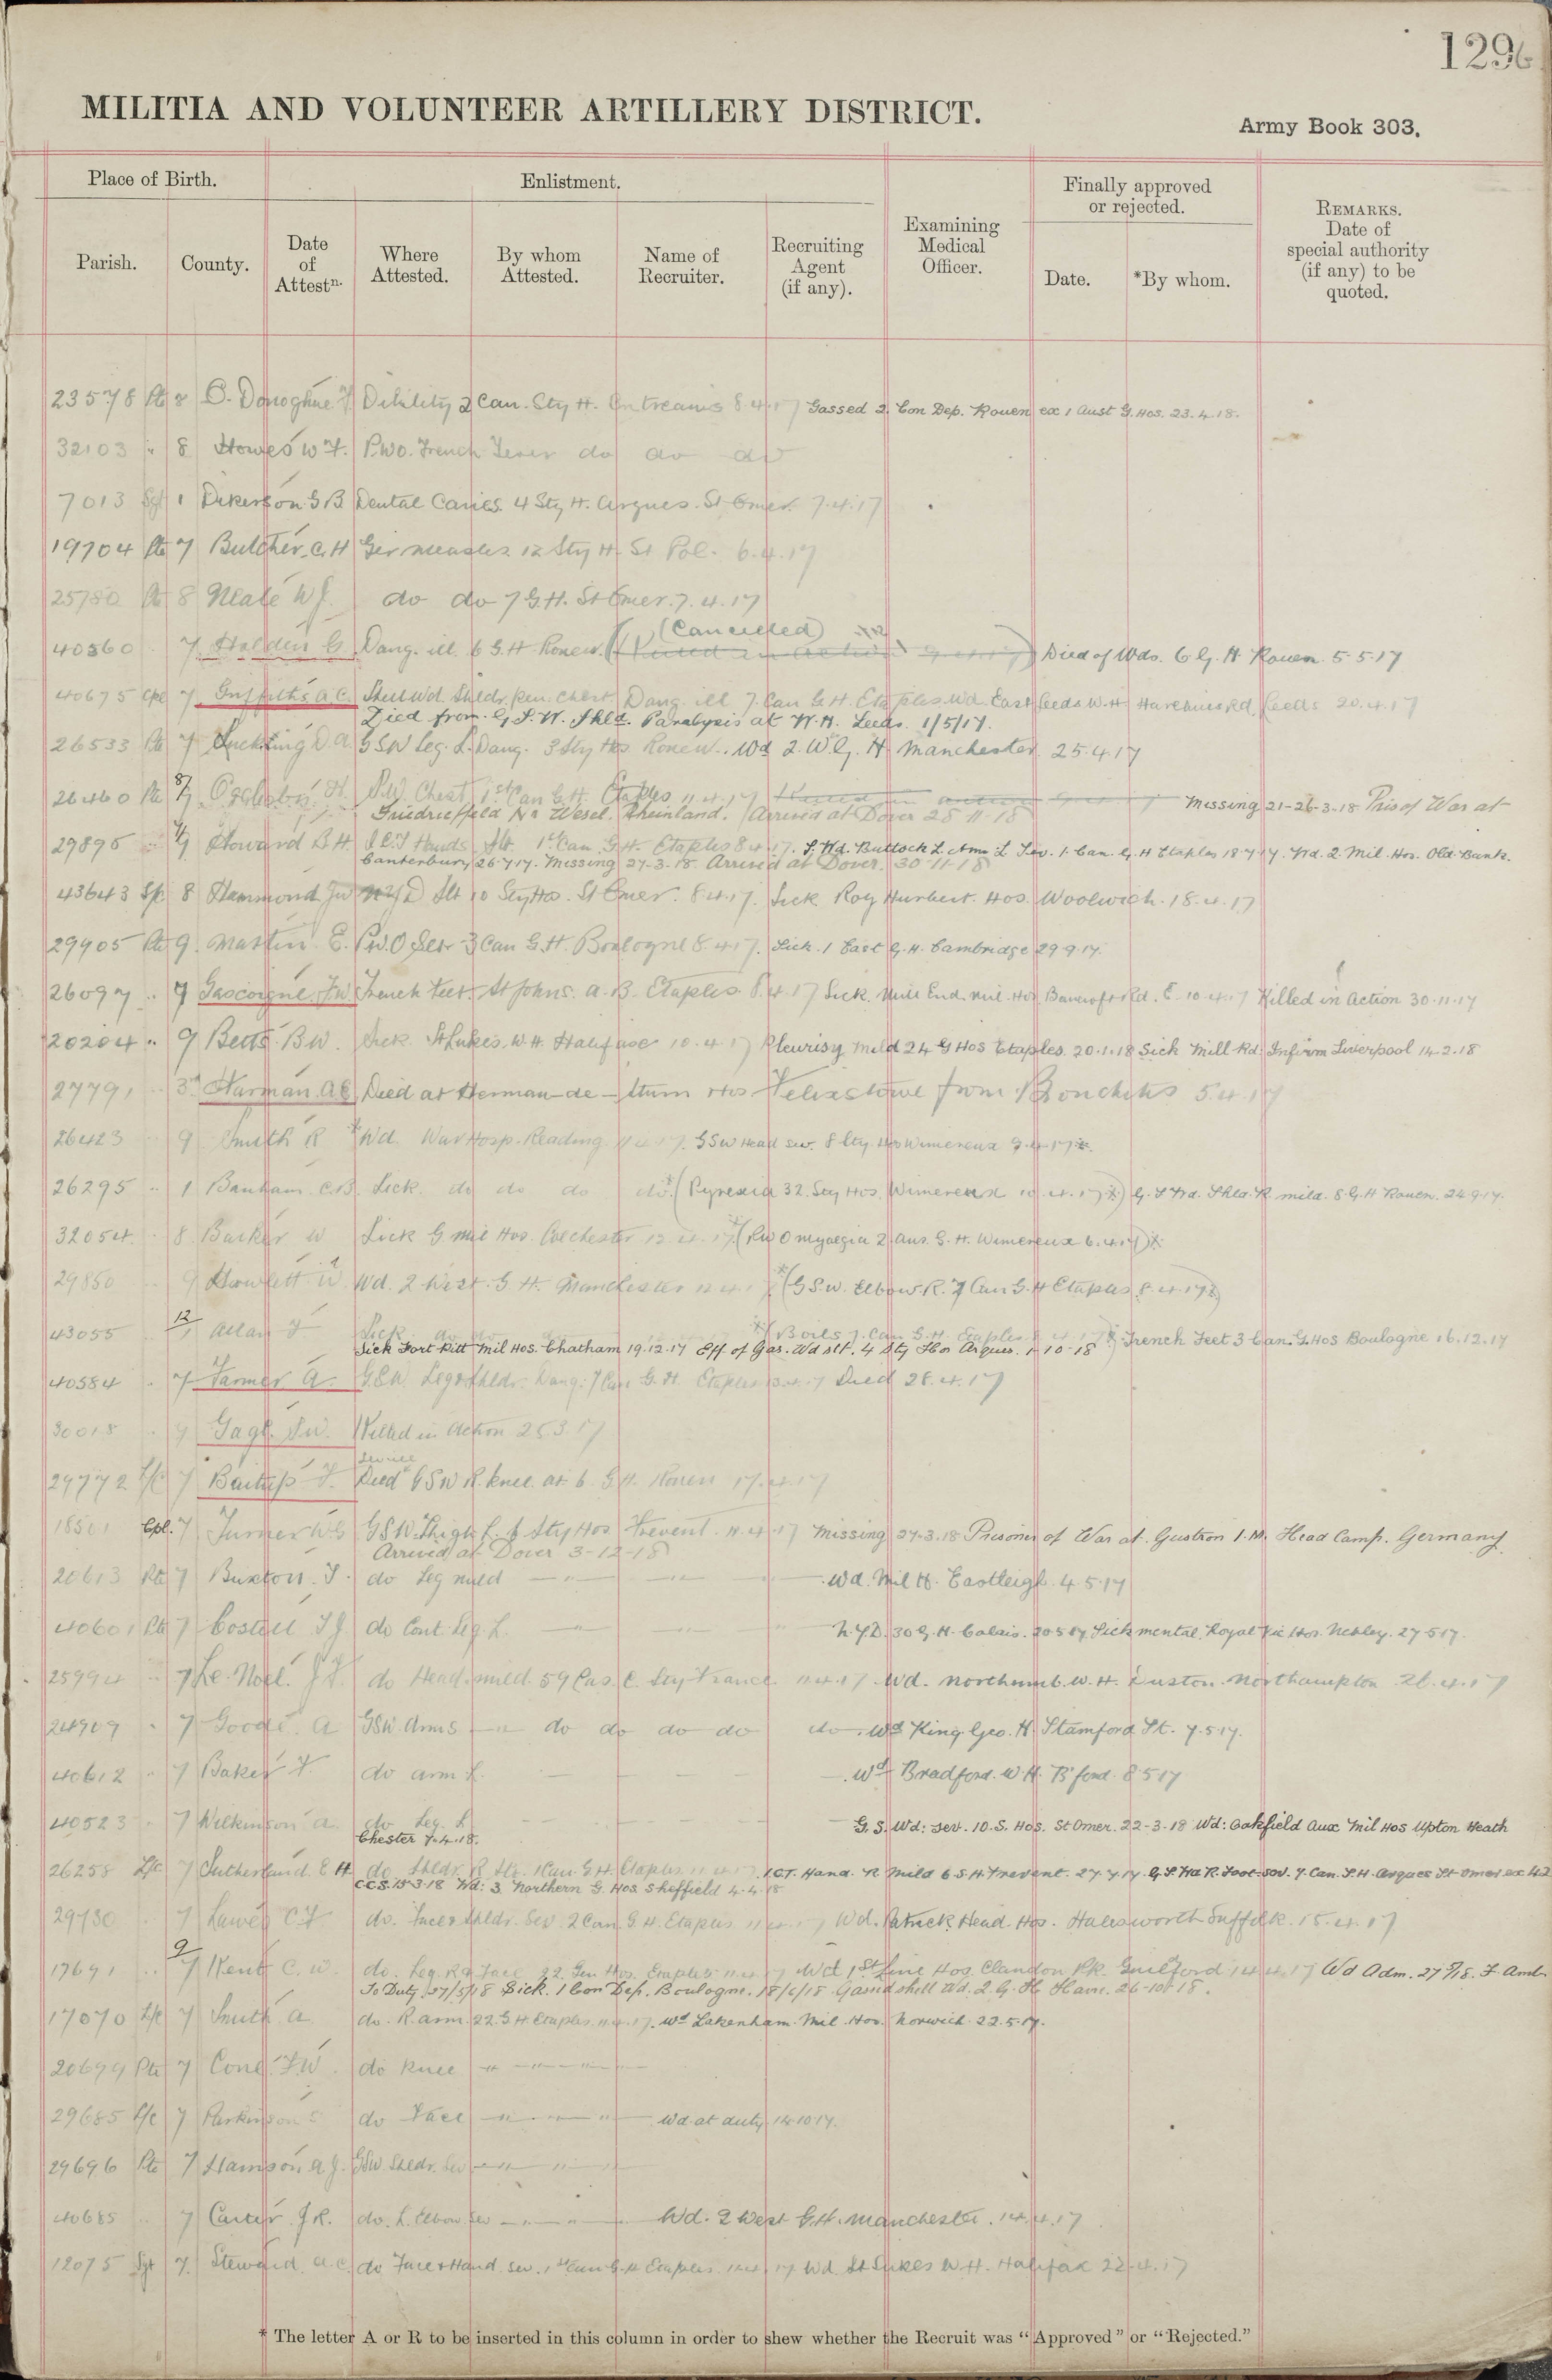 1296
MILITIA AND VOLUNTEER ARTILLERY DISTRICT.
Army Book 303.
Place of Birth.
Enlistment.
Finally approved or rejected.
Parish.
County.
Date of Attestn.
Where Attested.
By whom Attested.
Name of Recruiter.
Recruiting Agent (if any).
Examining Medical Officer.
Date.
*By whom.
REMARKS. Date of special authority (if any) to be quoted.
23578 Pte 8 O. Donoghue Debility 2 Can. Sty H. 8.4.17 Gassed 2. Con Dep. Rouen ex 1 Aust G. Hos. 23.4.18.
32103 " 8 Howes W.F. P.U.O. Trench Fever do do do
7013 Sgt 1 Dickerson G B Dental Caries. 4 Sty H. Arques. St Omer. 7.4.17
19704 Pte 7 Butcher. C. H Ger measles 12 Sty H. St Pol. 6.4.17
25780 Pte 8 Neale W J. do do 7 G.H. St Omer. 7.4.17
(Cancelled)
40360 7 Holden G Dang. ill. 6 G.H Rouen. Killed in action Died of Wds. 6 G. H. Rouen. 5.5.17
40675 Cpl 7 Griffiths A.C. Shell Wd. Shldr. pen. Chest Dang ill 7. Can G.H. Etaples Wd. East Leeds W.H Harehills Rd Leeds 20.4.17
Died from G.S.W. Shld. Paralysis at W.H. Leeds. 1/5/17.
26533 Pte 7 Suckling D A GSW Leg. L. Dang. 3 Sty Hos Rouen. Wd 2. W.G. H Manchester. 25.4.17
26460 Pte 8/7 S.W Chest 1st Can G.H. Etaples 11.4.17 Killed in action Missing 21-26-3-18 Pris of War at
Friedrichsfeld Nr Wesel. Rheinland. Arrived at Dover 28-11-18
29895 7 Howard B H I.C.T Hands Slt. 1st Can. G.H. Etaples 8.4.17. S. Wd. Buttock L. Arm L Sev. 1. Can. G. H Etaples 18.7.17. Wd. 2. Mil. Hos. Old Bank.
Canterbury 26.7.17. Missing 27-3-18. Arrived at Dover. 30-11-18
43643 8 Hammond J W N.Y.D Slt 10 Sty Ho. St Omer. 8.4.17. Sick Roy Herbert. Hos. Woolwich. 18.4.17
29905 Pte 9. Martin E. P.U.O Sev 3 Can G.H. Boulogne 8.4.17. Sick. 1 East G. H. Cambridge 29.9.17.
26097 .. 9 Gascoigne. J W Trench Feet. St Johns. A.B. Etaples. 8.4.17 Sick. Mile End. Mil. Hos. Bancroft Rd. E. 10.4.17 Killed in Action 30.11.17
20204 .. 9 Betts B W. Sick. St Lukes. W.H. Halifax 10.4.17 Pleurisy Mild 24 G Hos Etaples. 20.1.18 Sick Mill Rd. Infirm Liverpool 14.2.18
27791 .. 3rd Harman. A E Died at Herman-de-Stern Hos. Felixstowe from Bronchitis 5.4.17
26423 9 Smith R Wd. War Hosp. Reading. 11.4.17. GSW Head sev. 8 Sty. Hos Wimereux 9.4.17
26295 .. 1 Banham C.B. Sick. do do do do. (Pyrexia 32. Sty Hos. Wimereux 10.4.17) G.S. Wd. Shld. R mild. 8 G. H Rouen. 24.9.17.
32054 8 Barker W Sick G Mil Hos. Colchester 12.4.17 (P U O myalgia 2 Aus. G. H. Wimereux 6.4.17)
29850 9 Howlett W Wd. 2 West. G. H. Manchester 12.4.17 (G S.W. Elbow. R. 7 Can G.H Etaples 8.4.17)
43055 12/1 Allan F Sick (Boils 7. Can G. H. Etaples 4.17) Trench Feet 3 Can. G. Hos Boulogne 16.12.17
Sick Fort Pitt Mil Hos. Chatham 19.12.17 Eff of Gas. Wd slt. 4 Sty Hos Arques. 1-10-18
40584 . 7 Farmer A. G.S.W Leg & Shldr. Dang. 7 Can G. H. Etaples 13.4.17 Died 28.4.17
30018 9 Gage. S W. Killed in Action 25.3.17
29772 L/C 7 Died GSW R. knee. at 6. G.H. Rouen 17.4.17
18501 Cpl. 7 Turner W G GSW. Thigh L. 6 Sty Hos Frevent. 11.4.17 Missing 27.3.18 Prisoner of War at Gustron I.M. Head Camp. Germany
Arrived at Dover 3-12-18
20613 Pte 7 Buxton. J. do Leg mild — " — — " — Wd. Mil H. Eastleigh. 4.5.17
40601 Pte 7 Costell S J. do Cont. Leg L. — " — N.Y.D. 30 G.H. Calais. 20.5.17 Sick mental. Royal Vic Hos. Netley. 27.5.17.
25994 7 Le. Noel. J F. do Head. mild. 59 Cas. C. Sty. France 11.4.17 Wd. Northumb. W. H. Duston. Northampton 26.4.17
24909 7 Goode. A GSW. Arms do do do do do. Wd King Geo. H. Stamford St. 7.5.17.
40612 .. 7 Baker F. do arm L. Wd Bradford. W H. B'ford. 8.5.17
40523 7 Wilkinson A. do Leg. L G.S. Wd: sev. 10. S. Hos. St Omer. 22-3-18 Wd: Oakfield Aux Mil Hos Upton Heath
Chester 7.4.18.
26258 L/c 7 Sutherland. E H do Shldr. R Slt. 1 Can. G H. Etaples 11.4.17. I.C.T. Hand R Mild 6 S.H. Frevent. 27.7.17. G.S. Wd R. Foot. sev. 7. Can. S.H. Arques St Omer ex 42
C.C.S. 15-3-18 Wd: 3. Northern G. Hos Sheffield 4.4.18
29730 7 Lawes C.F do. Face & Shldr. Sev. 2 Can. G.H. Etaples 11.4.17 Wd. Patrick Head. Hos. Halesworth Suffolk. 15.4.17
17691 .. 9/7 Kent C. W. do. Leg. R & Face 22. Gen Hos. Etaples 11.4.17 Wd 1st Line Hos. Clandon Pk. Guilford 14.4.17 Wd Adm. 27/5/18. F Amb
To Duty 27/5/18 Sick. 1 Con Dep. Boulogne. 18/6/18 Gassed shell Wd. 2. G. H. Havre. 26-10-18.
17070 L/c 7 Smith A do. R. arm. 22. G H. Etaples. 11.4.17. Wd Lakenham. Mil. Hos. Norwich. 22.5.17.
20699 Pte 7 Cone. F.W. do Knee
29685 L/c 7 Parkinson S do Face Wd at duty 14.10.17.
29696 Pte 7 Hampson A J. GSW Shldr. Sev
40685 7 Carter J R. do. L. Elbow Sev Wd. 2 West G.H. Manchester. 14.4.17
12075 Sgt 7. Steward. A. C. do Face & Hand. Sev. 1st Can G.H Etaples. 11.4.17 Wd St Lukes W H. Halifax 22.4.17
* The letter A or R to be inserted in this column in order to shew whether the Recruit was "Approved" or "Rejected."